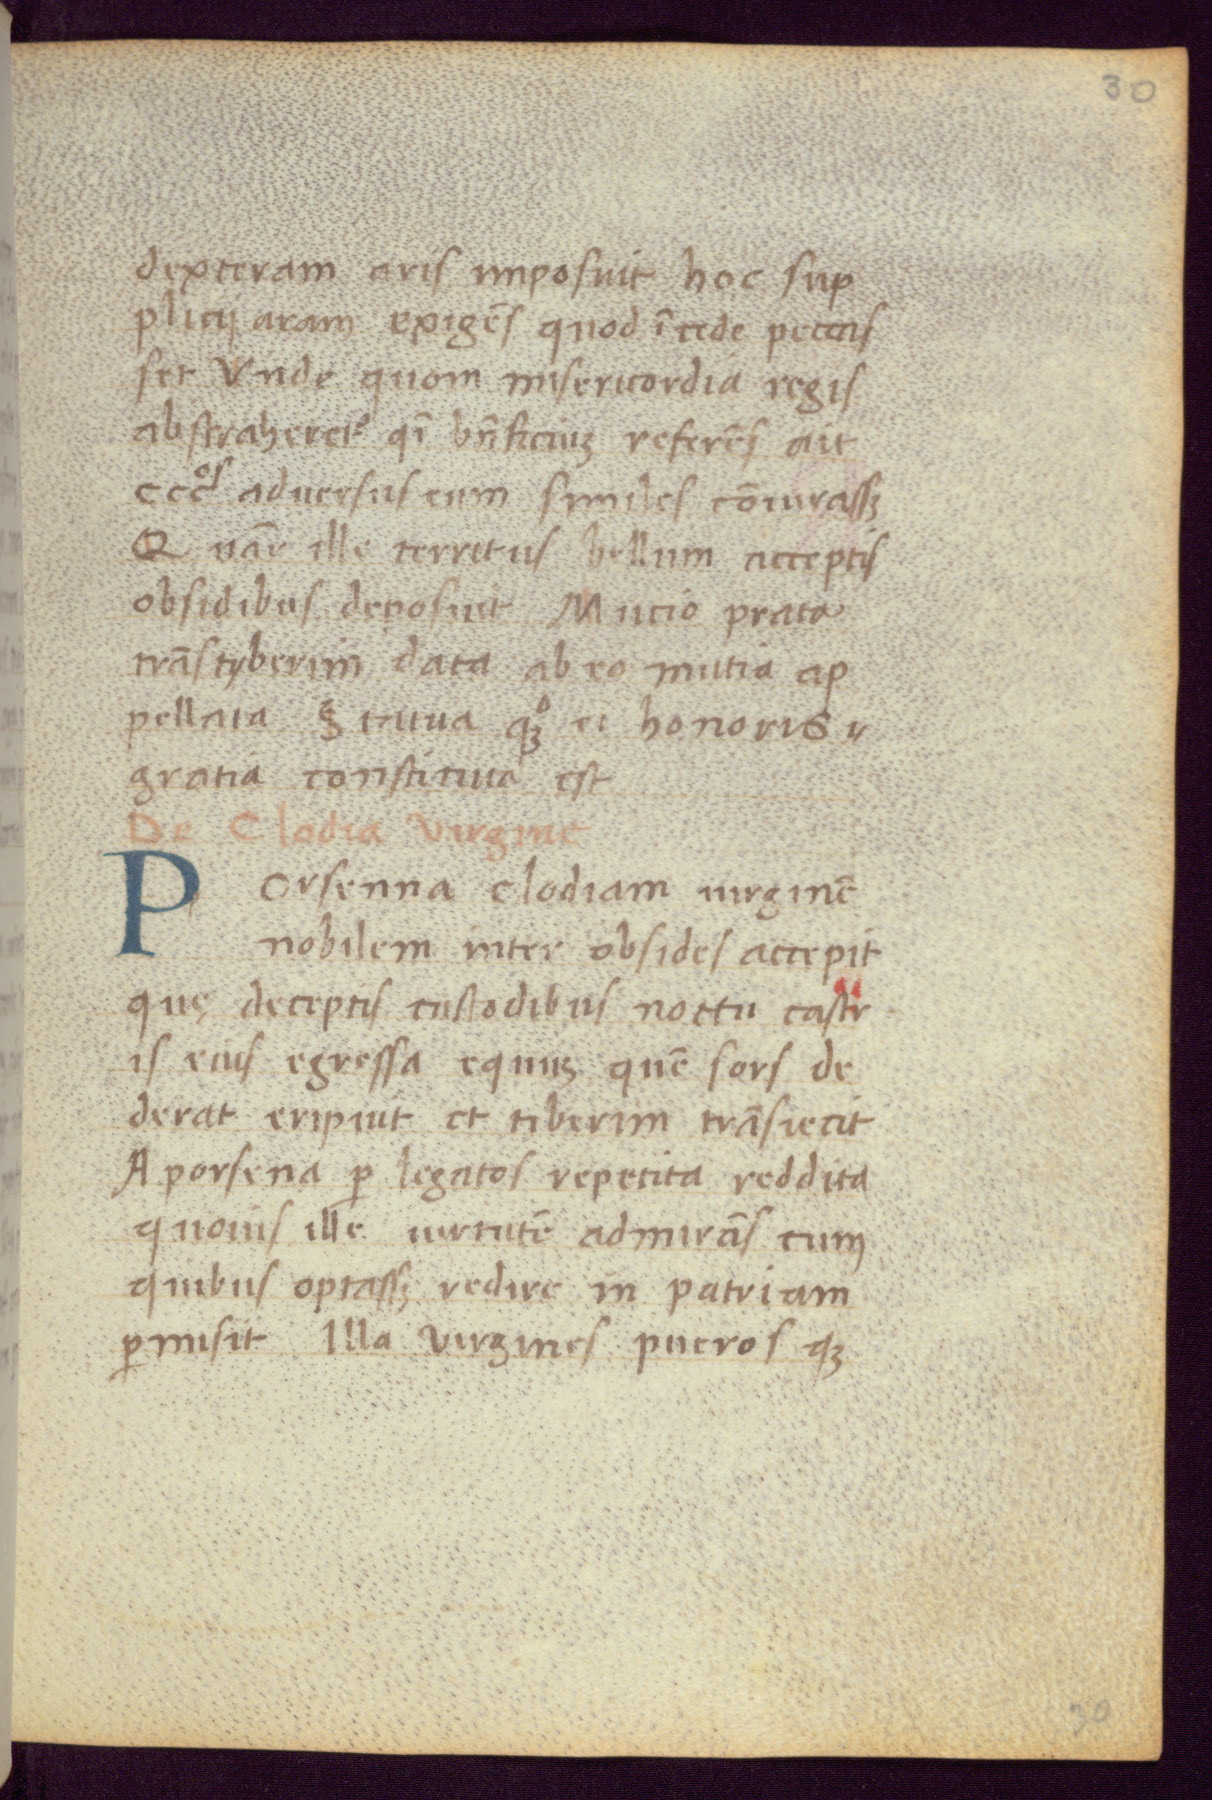 30
dexteram aris imposuit hoc sup
plicij aram exigēs quod ī cede peccas
set Vnde quom misericordia regis
abstraheretᷣ qī bn̄ficiuʒ referēs ait
cccos̄ aduersus eum similes cōiurassʒ
Quāre ille territus bellum acceptis
obsidibus deposuit Mucio prata
trāstyberim data ab eo mutia ap
pellata Statua qʒo ei honoris
gratia constituta est
De Clodia Virgine
Porsenna clodiam uirginē
nobilem inter obsides accepit
quę deceptis custodibus noctu castr
is eius egressa equuʒ quē sors de
derat eripuit et tiberim trāsiecit
A porsena ꝑ legatos repetita reddita
quoius ille uirtutē admirās cum
quibus optassʒ redire in patriam
ꝑmisit Illa Virgines pueros qʒ
30